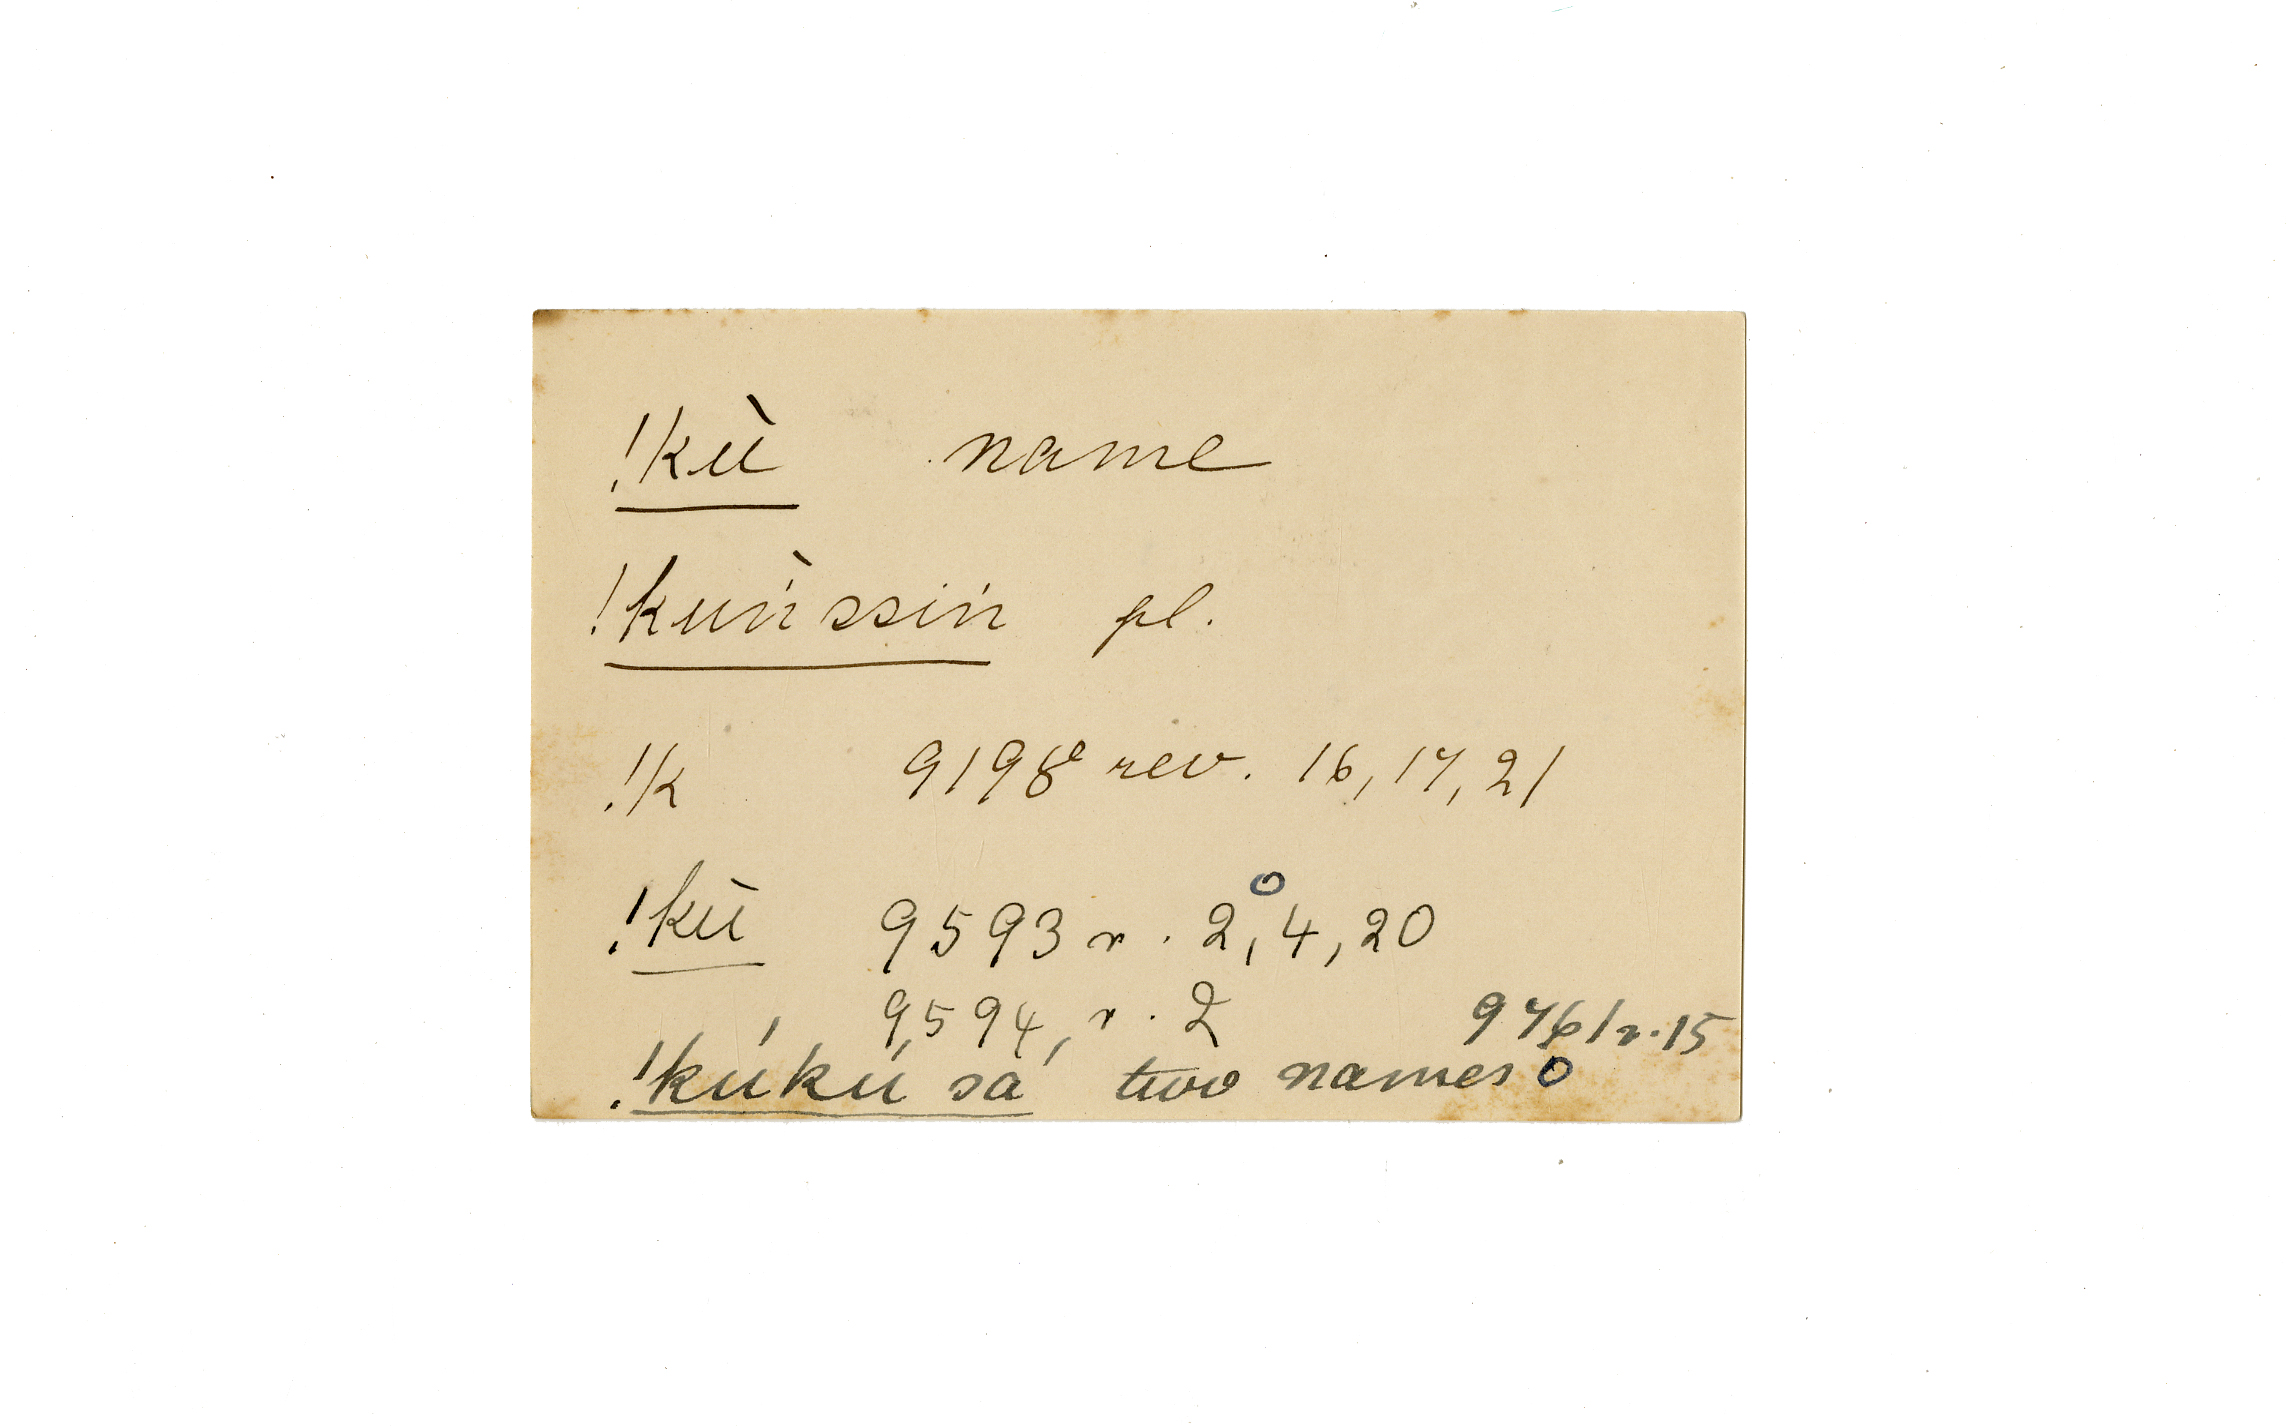 !kù name
!kuǹssiṅ pl.
!k 9198 rev. 16, 17, 21
!kù 9593 r. 2, 4, 20
9594, r. 2 9761 r. 15
!kúkú sá two names